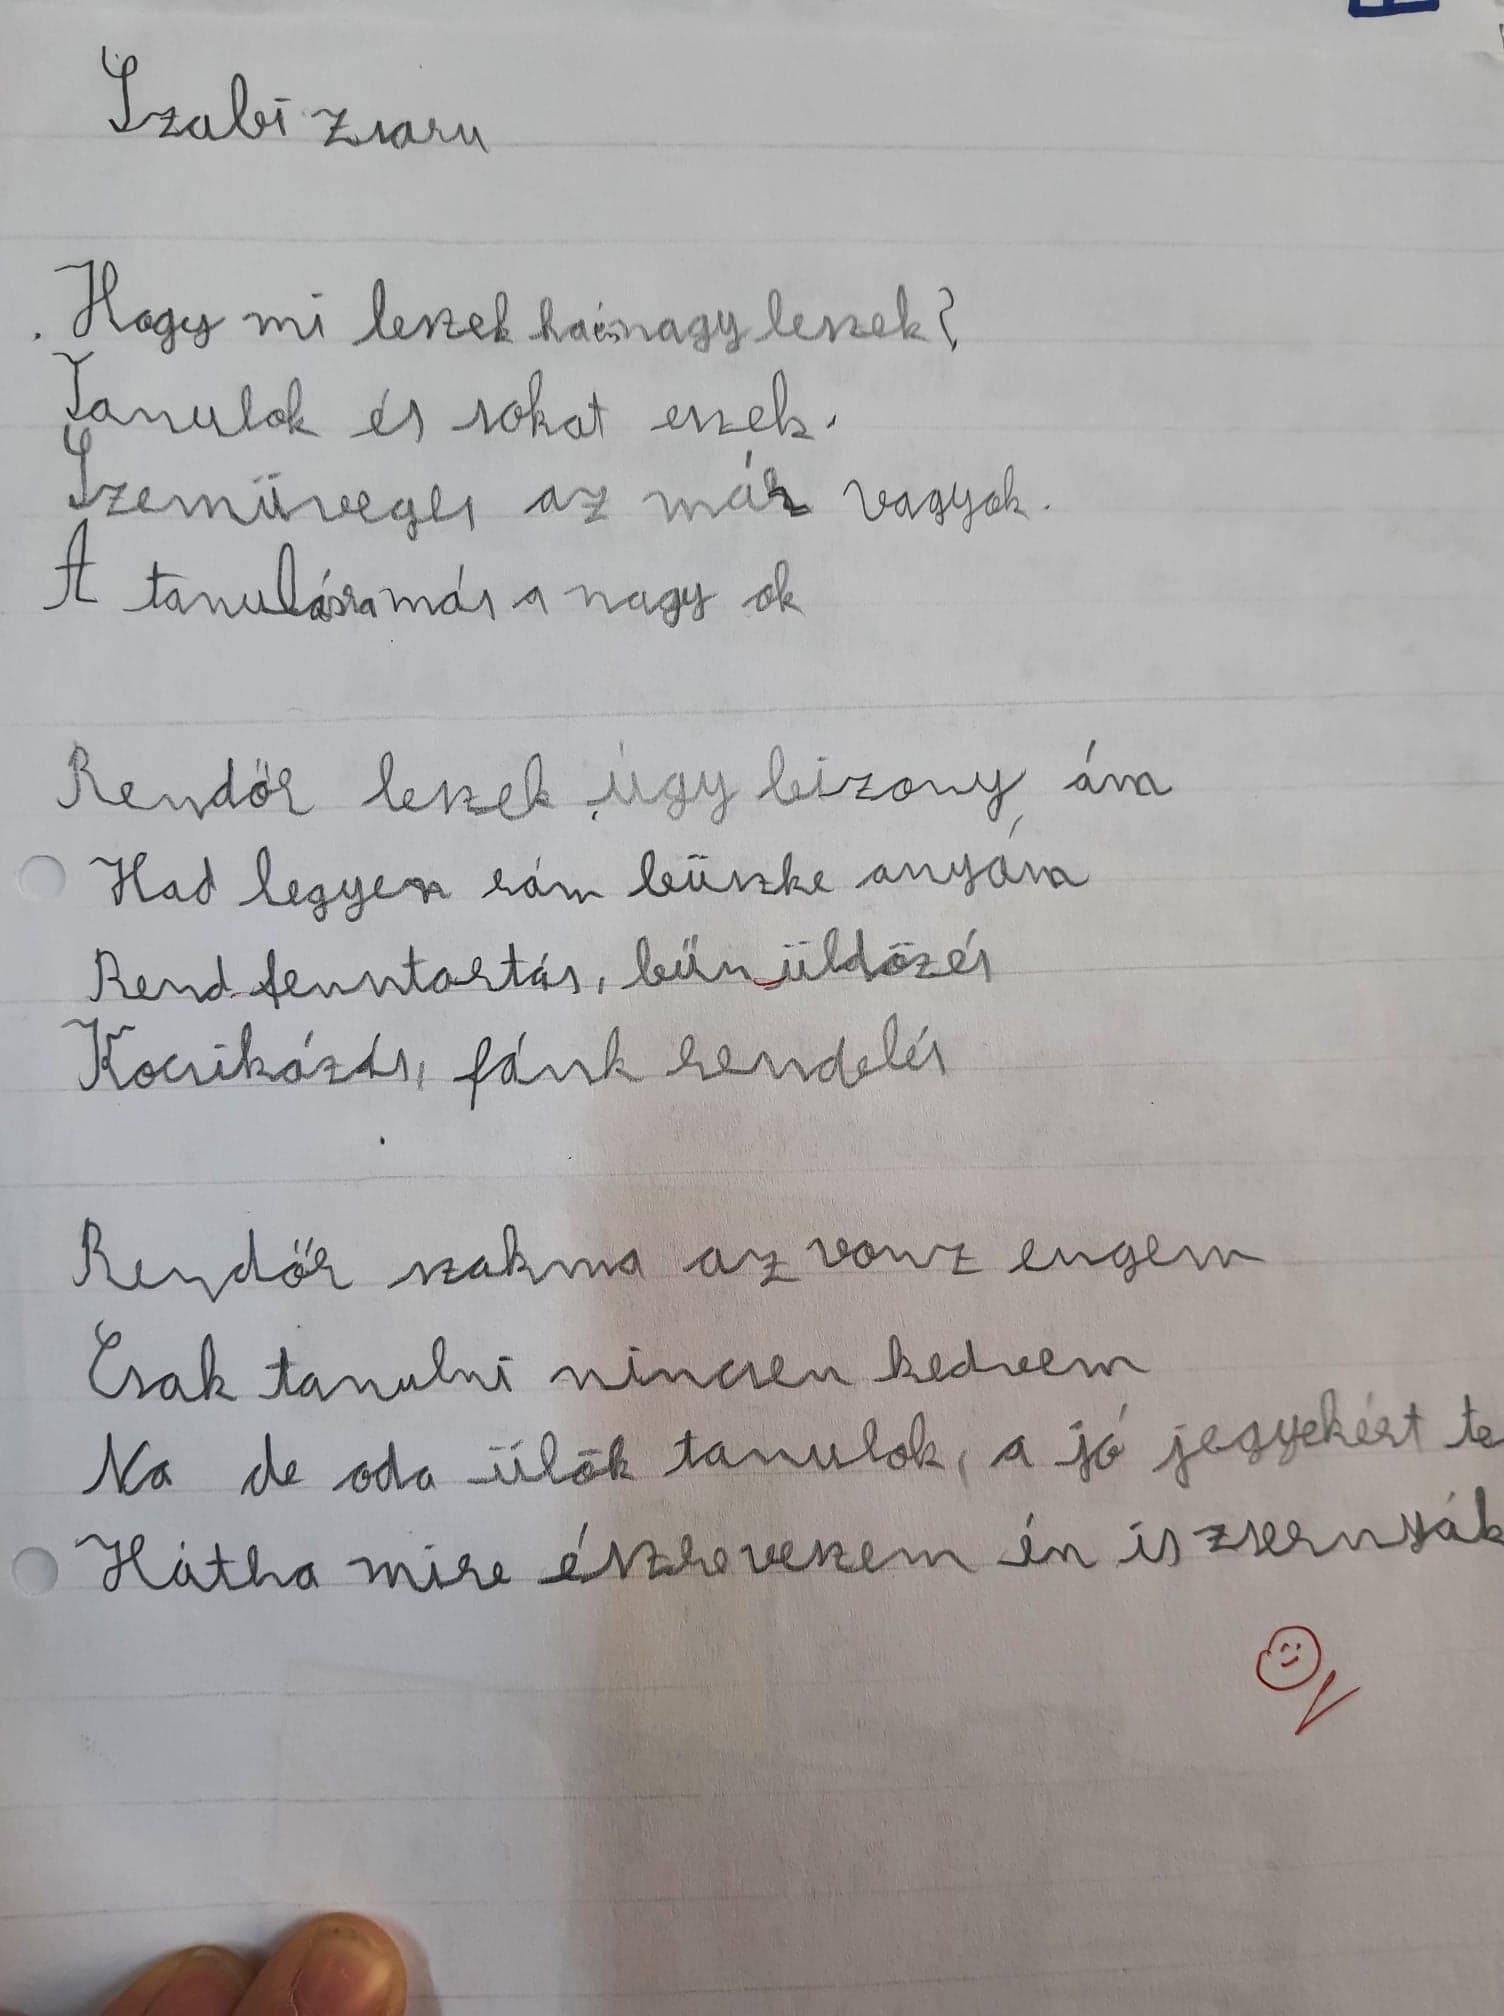 Szabi zsaru
Hogy mi leszek ha én nagy leszek?
Tanulok és sokat eszek.
Szemüveges az már vagyok.
A tanulásra más a nagy ok
Rendőr leszek, úgy bizony ám
Had legyen rám büszke anyám
Rend fenntartás, bűn üldözés
Kocsikázás, fánk rendelés
Rendőr szakma az vonz engem
Csak tanulni nincsen kedvem
Na de oda ülök tanulok, a jó jegyekért te
Hátha mire észreveszem én is zsernyák